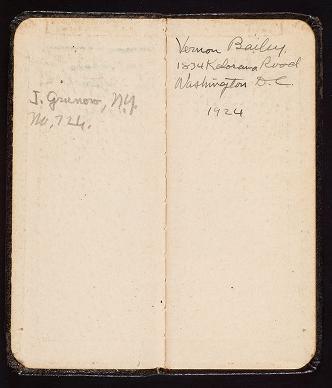 J. Grunow, N.Y.
No. 724.
Vernon Bailey
1834 Kalorama Road
Washington D.C.
1924